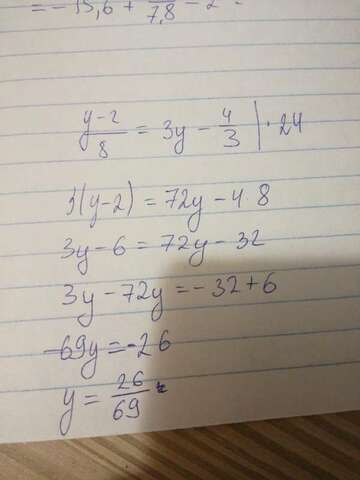 = - 15,6 + 7,8 - 2
(y-2)/8 = 3y - 4/3 | · 24
3(y-2) = 72y - 4 · 8
3y - 6 = 72y - 32
3y - 72y = - 32 + 6
-69y = -26
y = 26/69